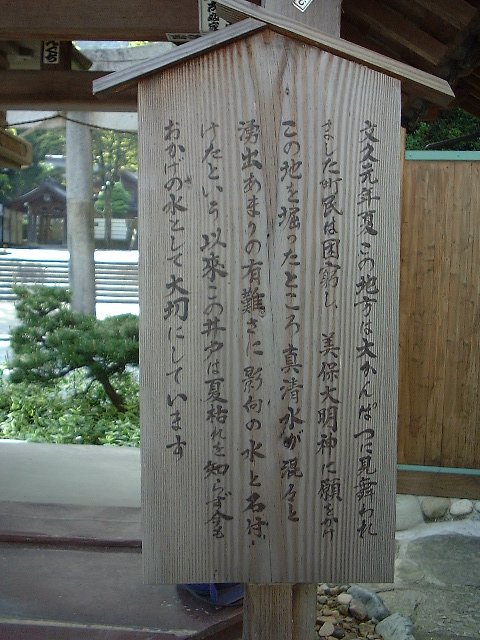 文久元年夏この地方は大かんばつに見舞われ
ました町民は困窮し、美保大明神に願をかけ
この地を掘ったところ真清水が混々と
湧出あまりの有難さに影向の水と名付
けたという以来この井戸は夏枯れを知らず今も
おかげの水として大切にしています